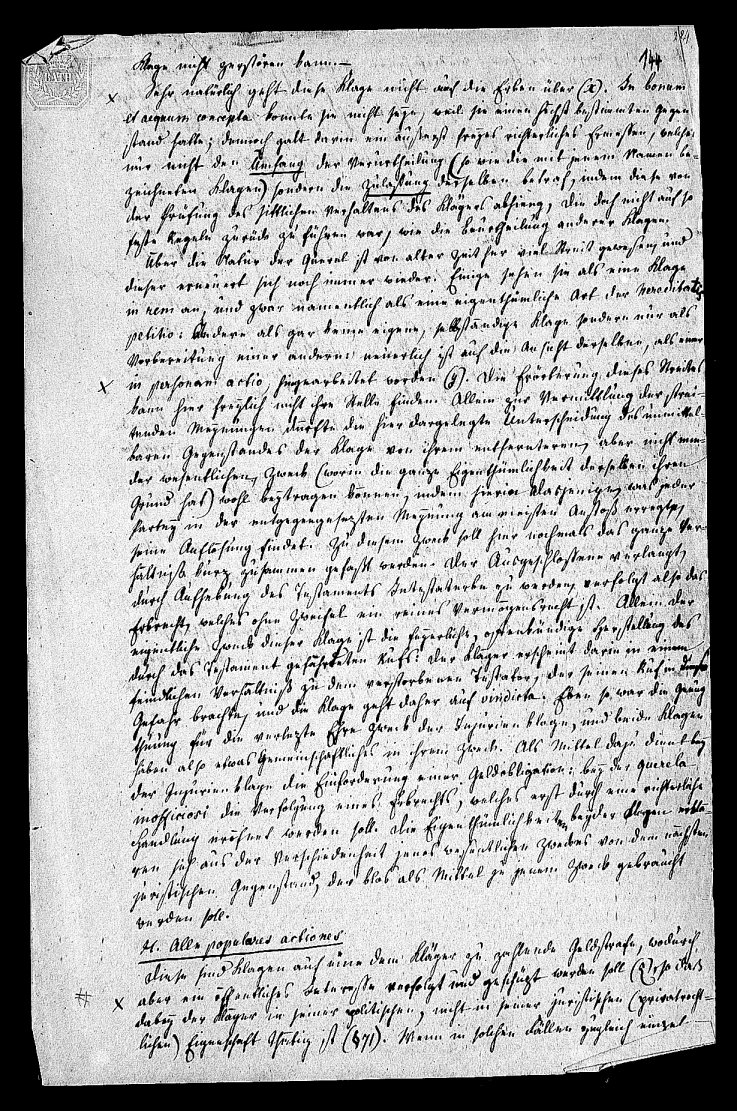 144
Klage nicht zerstören kann.—
x Sehr natürlich geht diese Klage nicht auf die Erben über (x). In bonum
et aequum concepta konnte sie nicht seyn, weil sie einen höchst bestimmten Gegen
stand hatte; dennoch galt darin ein äußerst freyes richterliches Ermessen, welches
nur nicht den Umfang der Verurtheilung (so wie die mit jenem Namen be-
zeichneten Klagen) sondern die Zulassung derselben betraf, indem diese von
der Prüfung des sittlichen Verhaltens des Klägers abhieng, die doch nicht auf so
feste Regeln zurück zu führen war, wie die Beurtheilung anderer Klagen.
Über die Natur der Querel ist von alter Zeit her viel Streit gewesen, und
dieser erneuert sich noch immer wieder. Einige sehen sie als eine Klage
in rem an, und zwar namentlich als eine eigenthümliche Art der hereditatis
petitio: Andere als gar keine eigene, selbständige Klage sondern nur als
Vorbereitung einer andern: neuerlich ist auf die Ansicht derselben, als einer
x in personam actio, hingearbeitet worden (y). Die Erörterung dieses Streites
kann hier freylich nicht ihre Stelle finden. Allein zur Vermittlung der strei-
tenden Meynungen dürfte die hier dargelegte Unterscheidung des unmittel-
baren Gegenstandes der Klage von ihrem entfernteren, aber nicht min-
der wesentlichen, Zweck (worin die ganze Eigenthümlichkeit derselben ihren
Grund hat) wohl beytragen können, indem hierin dasjenige, was jeder
Partey in der entgegengesetzten Meynung am meisten Anstoß erregte,
seine Auflösung findet. Zu diesem Zweck soll hier nochmals das ganze Ver-
hältniß kurz zusammen gefaßt werden. Der Ausgeschlossene verlangt,
durch Aufhebung des Testaments Intestaterbe zu werden, verfolgt also das
Erbrecht, welches ohne Zweifel ein reines Vermögensrecht ist. Allein der
eigentliche Zweck dieser Klage ist die feyerliche, offenkundige Herstellung des
durch das Testament gefährdeten Rufs: der Kläger erscheint darin in einem
feindlichen Verhältniß zu dem verstorbenen Testator, der seinen Ruf in
Gefahr brachte, und die Klage geht daher auf vindicta. Eben so war die Genug
thuung für die verletzte Ehre Zweck der Injurienklage, und beide Klagen
haben also etwas Gemeinschaftliches in ihrem Zweck. Als Mittel dazu dient bey
der Injurienklage die Einforderung einer Geldobligation: bey der querela
inofficiosi die Verfolgung eines Erbrechts, welches erst durch eine richterliche
Handlung eröffnet werden soll. Die Eigenthümlichkeiten beyder Klagen erklä-
ren sich aus der Verschiedenheit jenes wesentlichen Zweckes von dem nächsten
juristischen Gegenstand, der blos als Mittel zu jenem Zweck gebraucht
werden soll.
4. Alle populares actiones
Diese sind Klagen auf eine dem Kläger zu zahlende Geldstrafe, wodurch
# x aber ein öffentliches Interesse verfolgt und geschützt werden soll (z), so daß
dabey der Kläger in seiner politischen, nicht in seiner juristischen (privatrecht-
lichen) Eigenschaft thätig ist (§ 71). Wenn in solchen Fällen zugleich einzel-